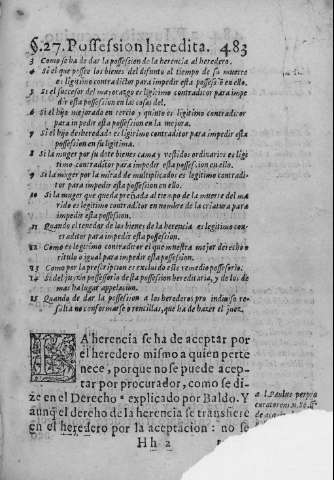 §.27. Possession heredita. 483
3 Como se ha de dar la possession de la herencia al heredero.
4 Si el que posee los bienes del difunto al tiempo de su muerte
es legitimo contraditor para impedir esta possession en ello.
5 Si el successor del mayorazgo es legitimo contraditor para impe
dir esta possession en las cosas del.
6 Si el hijo mejorado en tercio y quinto es legitimo contraditor
para impedir esta possession en la mejora.
7 Si el hijo desheredado es legitimo contraditor para impedir esta
possession en su legitima.
8 Si la muger por su dote bienes cama y vestidos ordinarios es legi
timo contraditor para impedir esta possession en ello.
9 Si la muger por la mitad de multiplicados es legitimo contradi-
tor para impedir esta possession en ello.
10 Si la muger que queda preñada al tiempo de la muerte del ma
rido es legitimo contraditor en nombre de la criatura para
impedir esta possession.
11 Quando el tenedor de los bienes de la herencia es legitimo con-
traditor para impedir esta possession.
12 Como es legitimo contraditor el que muestra mejor derecho o
titulo o igual para impedir esta possession.
13 Como por la prescripcion es excluido este remedio possessorio.
14 Si del juyzio possessorio desta possession hereditaria, y de los de
mas ha lugar appelacion.
15 Quando de dar la possession a los herederos pro indiuiso re-
sulta no conformarse o rencillas, que ha de hazer el juez.
LA herencia se ha de aceptar por
el heredero mismo a quien perte
nece, porque no se puede acep-
tar por procurador, como se di-
ze en el Derecho a explicado por Baldo. Y
aunq̃ el derecho de la herencia se transfiere
en el heredero por la aceptacion: no se
Hh 2
a l. Paulus